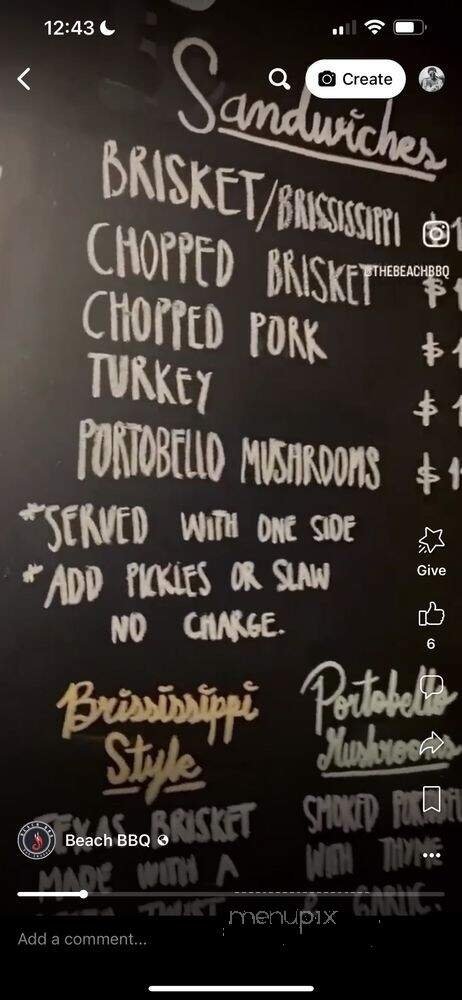 12:43
Create
Sandwiches
BRISKET/BRISSISSIPPI $1
@THEBEACHBBQ
CHOPPED BRISKET $1
CHOPPED PORK $1
TURKEY $1
PORTOBELLO MUSHROOMS $1
*SERVED WITH ONE SIDE
*ADD PICKLES OR SLAW
NO CHARGE.
Give
6
Brississippi
Style
Portobello
Mushrooms
TEXAS BRISKET
MADE WITH A
SMOKED
WITH THYME
& GARLIC.
Beach BBQ
menupix
Add a comment...